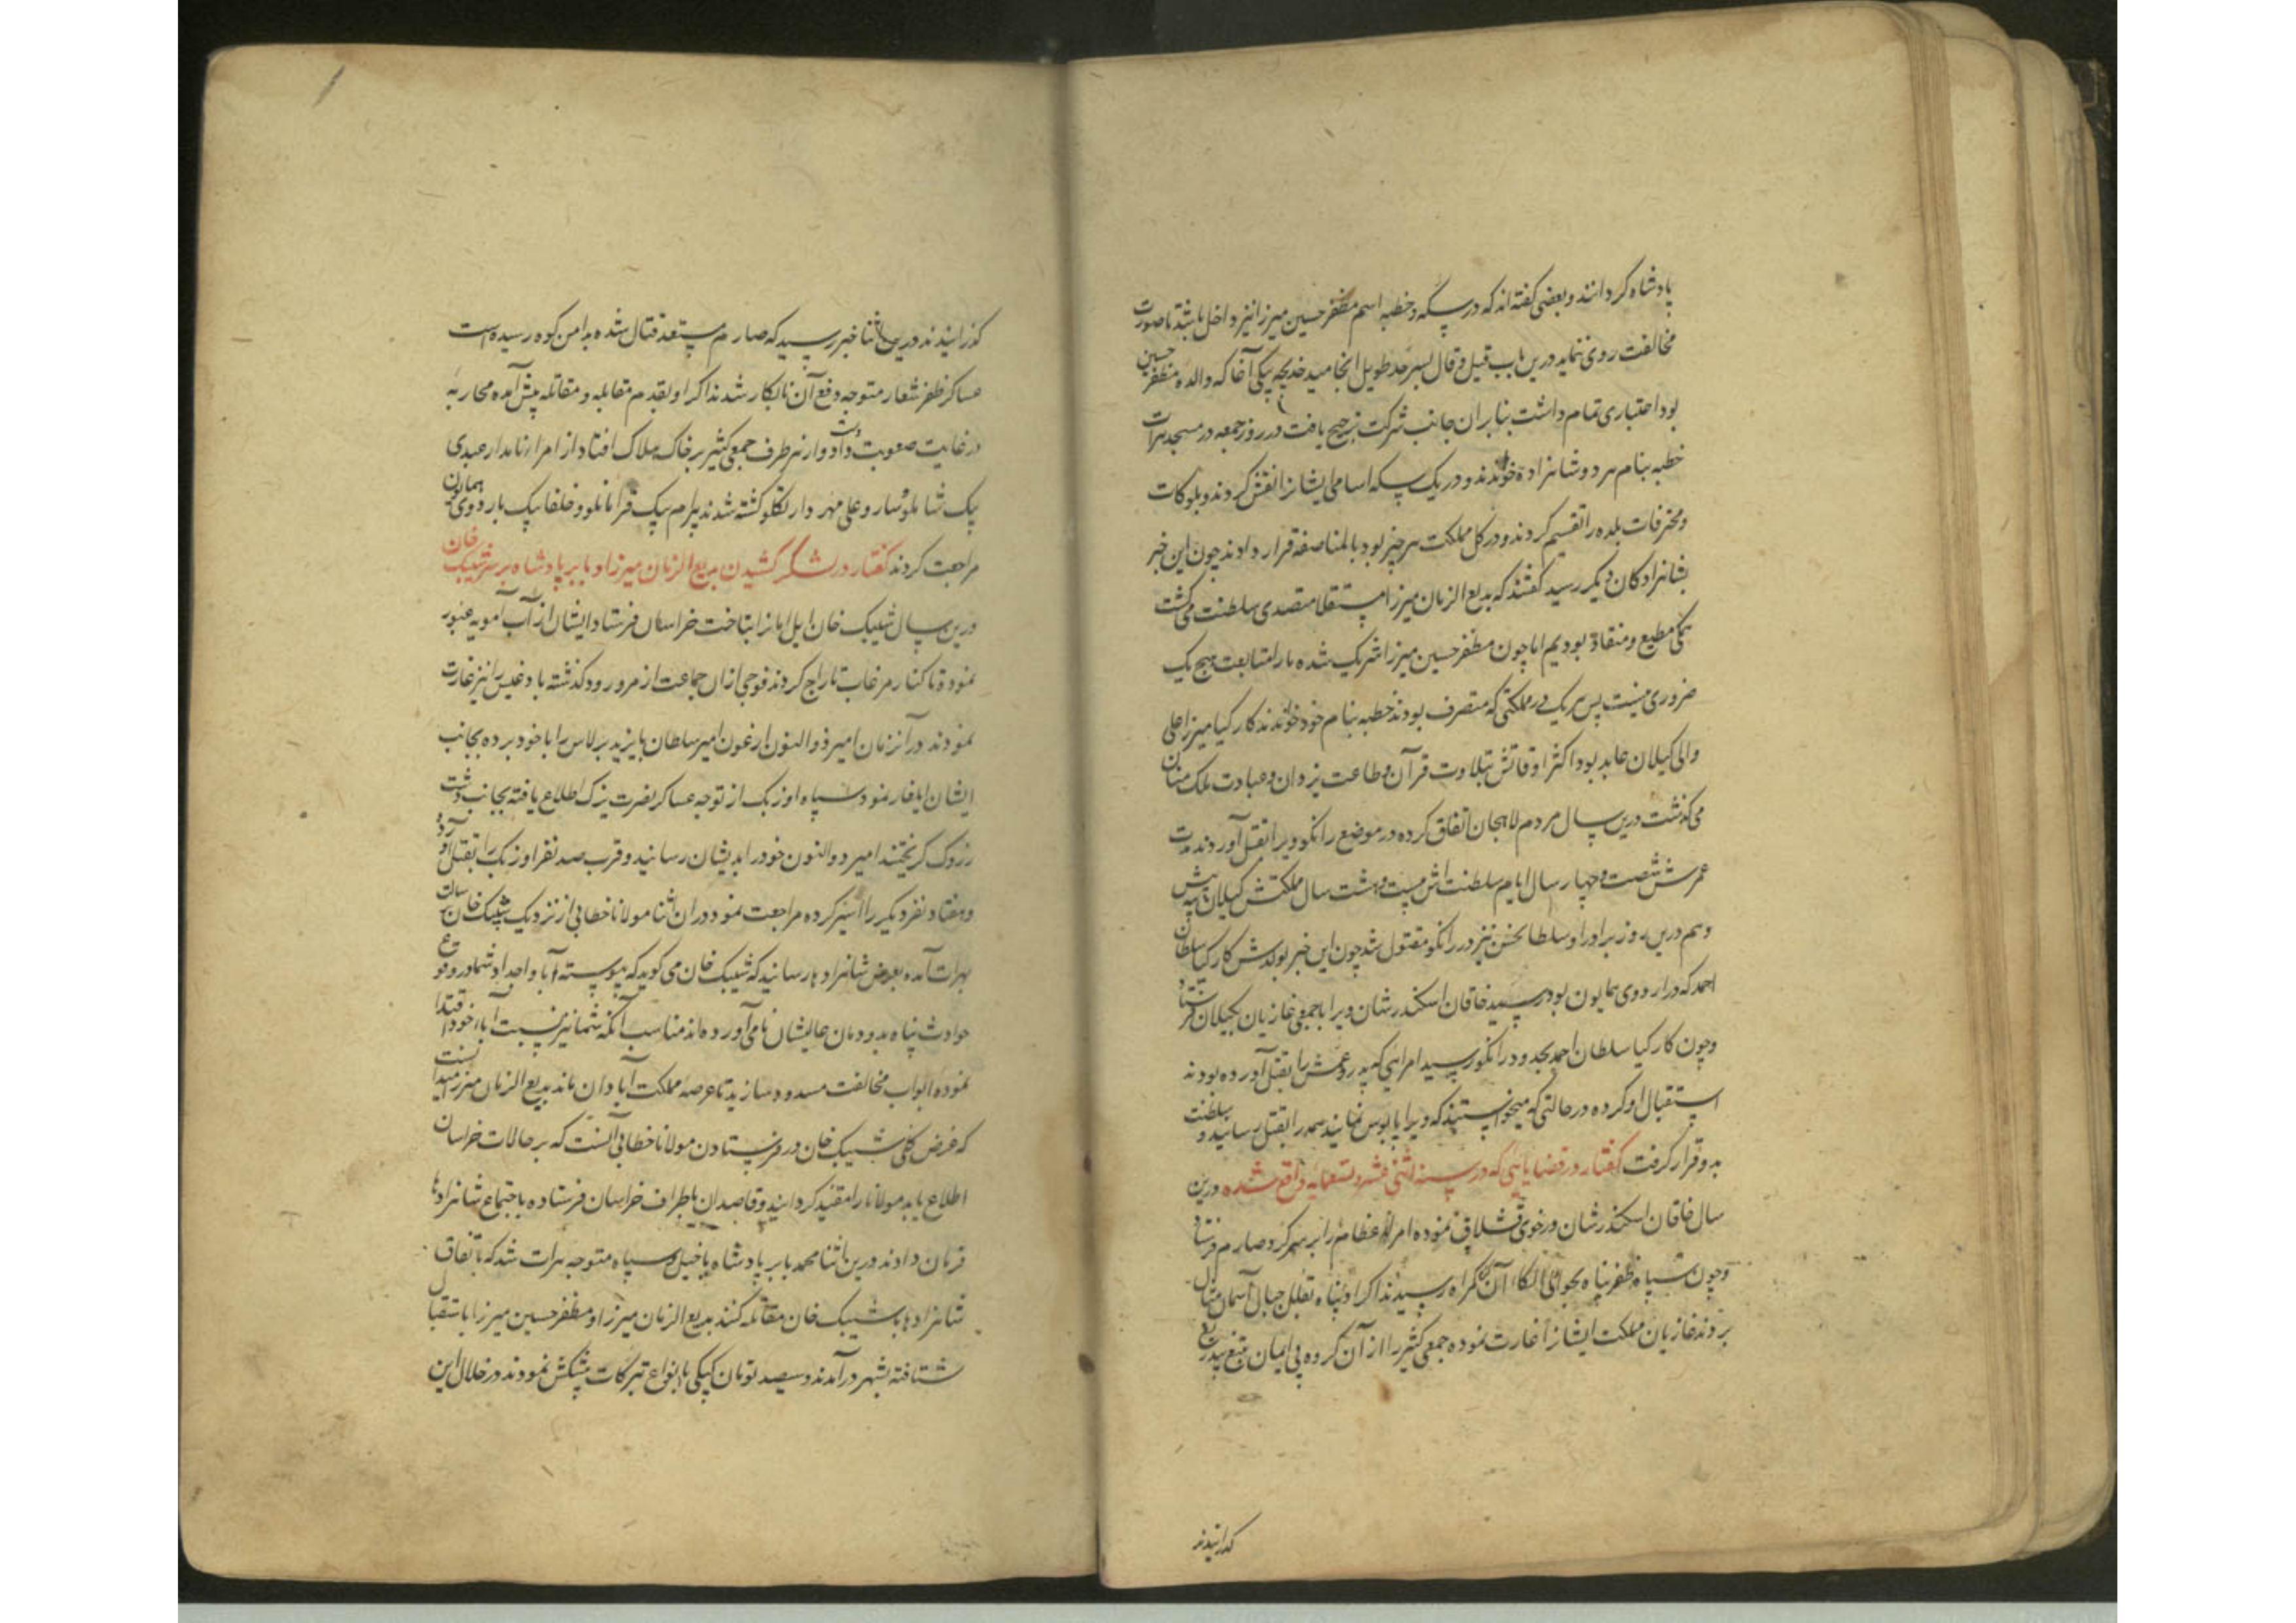 پادشاه گردانند و بعضی گفته‌اند که در سکه و خطبه اسم مظفر حسین میرزا نیز داخل باشد تا صورت
مخالفت روی ننماید درین باب قیل و قال بسرحد طویل انجامید خدیجه بیکی آغا که والده مظفر حسین
بود اعتباری تمام داشت بنابران جانب شرکت ترجیح یافت در روز جمعه در مسجد هرات
خطبه بنام هر دو شاهزاده خواندند و در یک سکه اسامی ایشانرا نقش کردند و بلوکات
و محترفات بلده را تقسیم کردند و در کل مملکت هر چیز بود بالمناصفه قرار دادند چون این خبر
بشاهزادکان دیکر رسید کفتند که بدیع الزمان میرزا مستقلا متصدی سلطنت می کشت
همکی مطیع و منقاد بودیم اما چون مظفر حسین میرزا شریک شده ما را متابعت هیچ یک
ضروری نیست پس هر یک در مملکتی که متصرف بودند خطبه بنام خود خواندند کارکیا میرزا علی
والی کیلان عابد بود اکثر اوقاتش بتلاوت قرآن و طاعت یزدان و عبادت ملک منان
می کذشت درین سال مردم لاهجان اتفاق کرده در موضع رانکو ویرا بقتل آوردند مدت
عمرش شصت و چهار سال ایام سلطنت اش بیست و هشت سال مملکتش کیلان بیه پیش
و هم درین روز برادر او سلطان حسن نیز در رانکو مقتول شد چون این خبر بولدش کارکیا سلطان
احمد که در اردوی همایون بود رسید خاقان اسکندر شان ویرا با جمعی غازیان بکیلان فرستاد
و چون کارکیا سلطان احمد بحدود رانکو رسید امرایی که پدر و عمش را بقتل آورده بودند
استقبال او کرده در حالتی که میخواستند که ویرا پابوس نمایند همه را بقتل رسانید و سلطنت
بدو قرار کرفت کفتار در قضایایی که در سنه اثنی عشر و تسعمایه واقع شده درین
سال خاقان اسکندر شان در خوی قشلاق نموده امراء عظام را بر سر کرد صارم فرستاد
و چون سپاه ظفر پناه بحوالی الکاء آن کمراه رسیدند اکراد پناه بقلل جبال آسمان مثال
بردند غازیان مملکت ایشانرا غارت نموده جمعی کثیر را از آن کروه بی ایمان بتیغ بیدریغ
کذرانیدند
کذرانیدند درین اثنا خبر رسید که صارم مستعد قتال شده بدامن کوه رسیده است
عساکر ظفر شعار متوجه دفع آن نابکار شدند اکراد بقدم مقابله و مقاتله پیش آمده محاربه
در غایت صعوبت دست داد و از هر طرف جمعی کثیر بر خاک هلاک افتاد از امراء نامدار عبدی
بیک شاملو و سارو علی مهردار تکلو کشته شدند بیرام بیک قرامانلو و خلفا بیک باردوی همایون
مراجعت کردند کفتار در لشکر کشیدن بدیع الزمان میرزا و بابر پادشاه بر سر شیبک خان
درین سال شیبک خان ایل امان را بتاخت خراسان فرستاد ایشان از آب آمویه عبور
نموده تا کنار مرغاب تاراج کردند فوجی از ان جماعت از مرو رود کذشته بادغیس را نیز غارت
نمودند در آنزمان امیر ذوالنون ارغون امیر سلطان بایزید برلاس را با خود برده بجانب
ایشان ایلغار نمود سپاه اوزبک از توجه عساکر نصرت یزک اطلاع یافته بجانب دشت
زروک کریختند امیر ذوالنون خود را بدیشان رسانید و قرب صد نفر اوزبک را بقتل آورد
و هفتاد نفر دیکر را اسیر کرده مراجعت نمود در ان اثنا مولانا خطایی از نزدیک شیبک خان برسالت
بهرات آمده بعرض شاهزادها رسانید که شیبک خان می کوید که پیوسته آبا و اجداد شما در وقوع
حوادث پناه بدودمان عالیشان ما می آورده اند مناسب آنکه شما نیز بنسبت آباء خود اقتدا
نموده ابواب مخالفت مسدود سازید تا عرصه مملکت آبادان ماند بدیع الزمان میرزا میدانست
که غرض کلی شیبک خان در فرستادن مولانا خطایی آنست که بر حالات خراسان
اطلاع یابد مولانا را مقید کردانید و قاصدان باطراف خراسان فرستاده باجتماع شاهزادها
فرمان دادند درین اثنا محمد بابر پادشاه با خیل و سپاه متوجه هرات شد که باتفاق
شاهزادها با شیبک خان مقاتله کنند بدیع الزمان میرزا و مظفر حسین میرزا باستقبال
شتافته بشهر در آمدند و سیصد تومان کپکی با انواع تبرکات پیشکش نمودند در خلال این